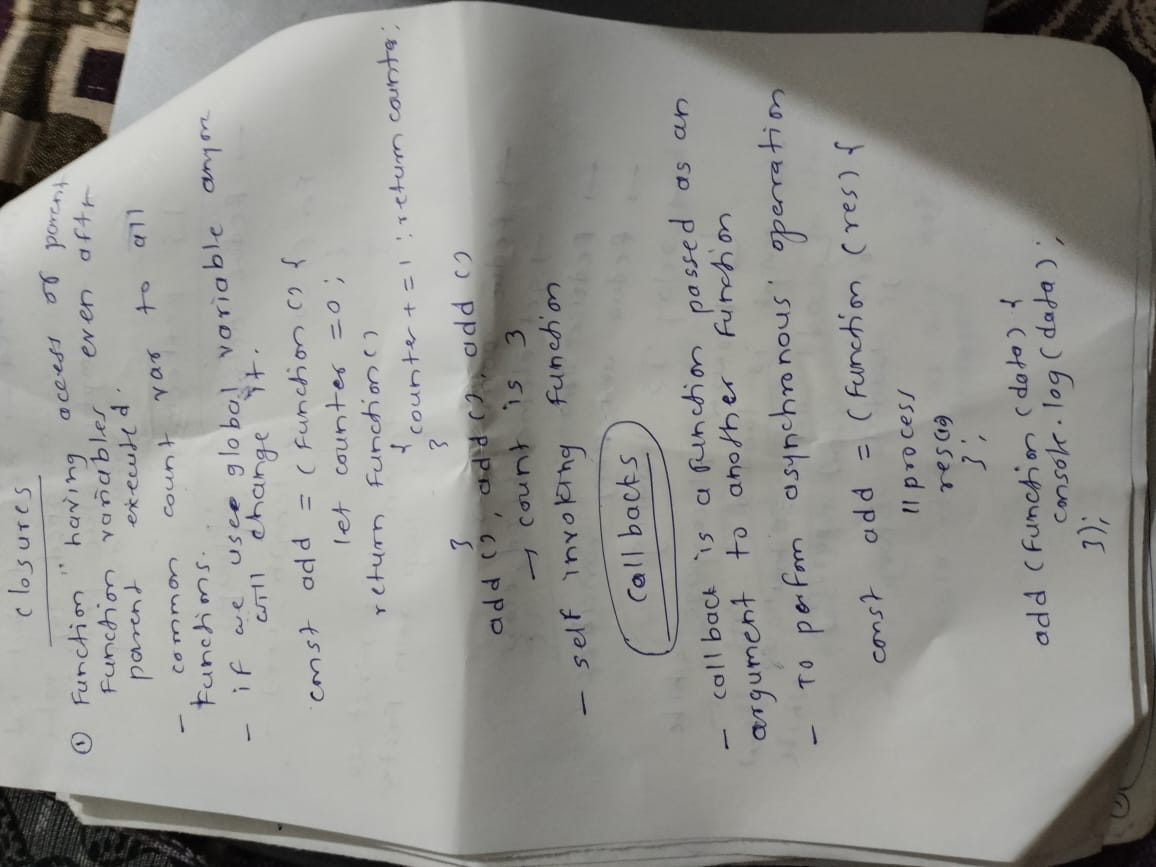 closures
① Function having access of parent
function variables even aftr
parent executed.
- common count var to all
functions.
- if we use global variable anyon
will change it.
const add = (function () {
let counter = 0;
return function()
{ counter += 1; return counter;
}
}
add (), add (), add ()
→ count is 3
- self invoking function
Callbacks
- callback is a function passed as an
argument to another function
- To perfom asynchronous operation
const add = (function (res) {
// process
res()
};
add (function (data) {
console.log (data);
});